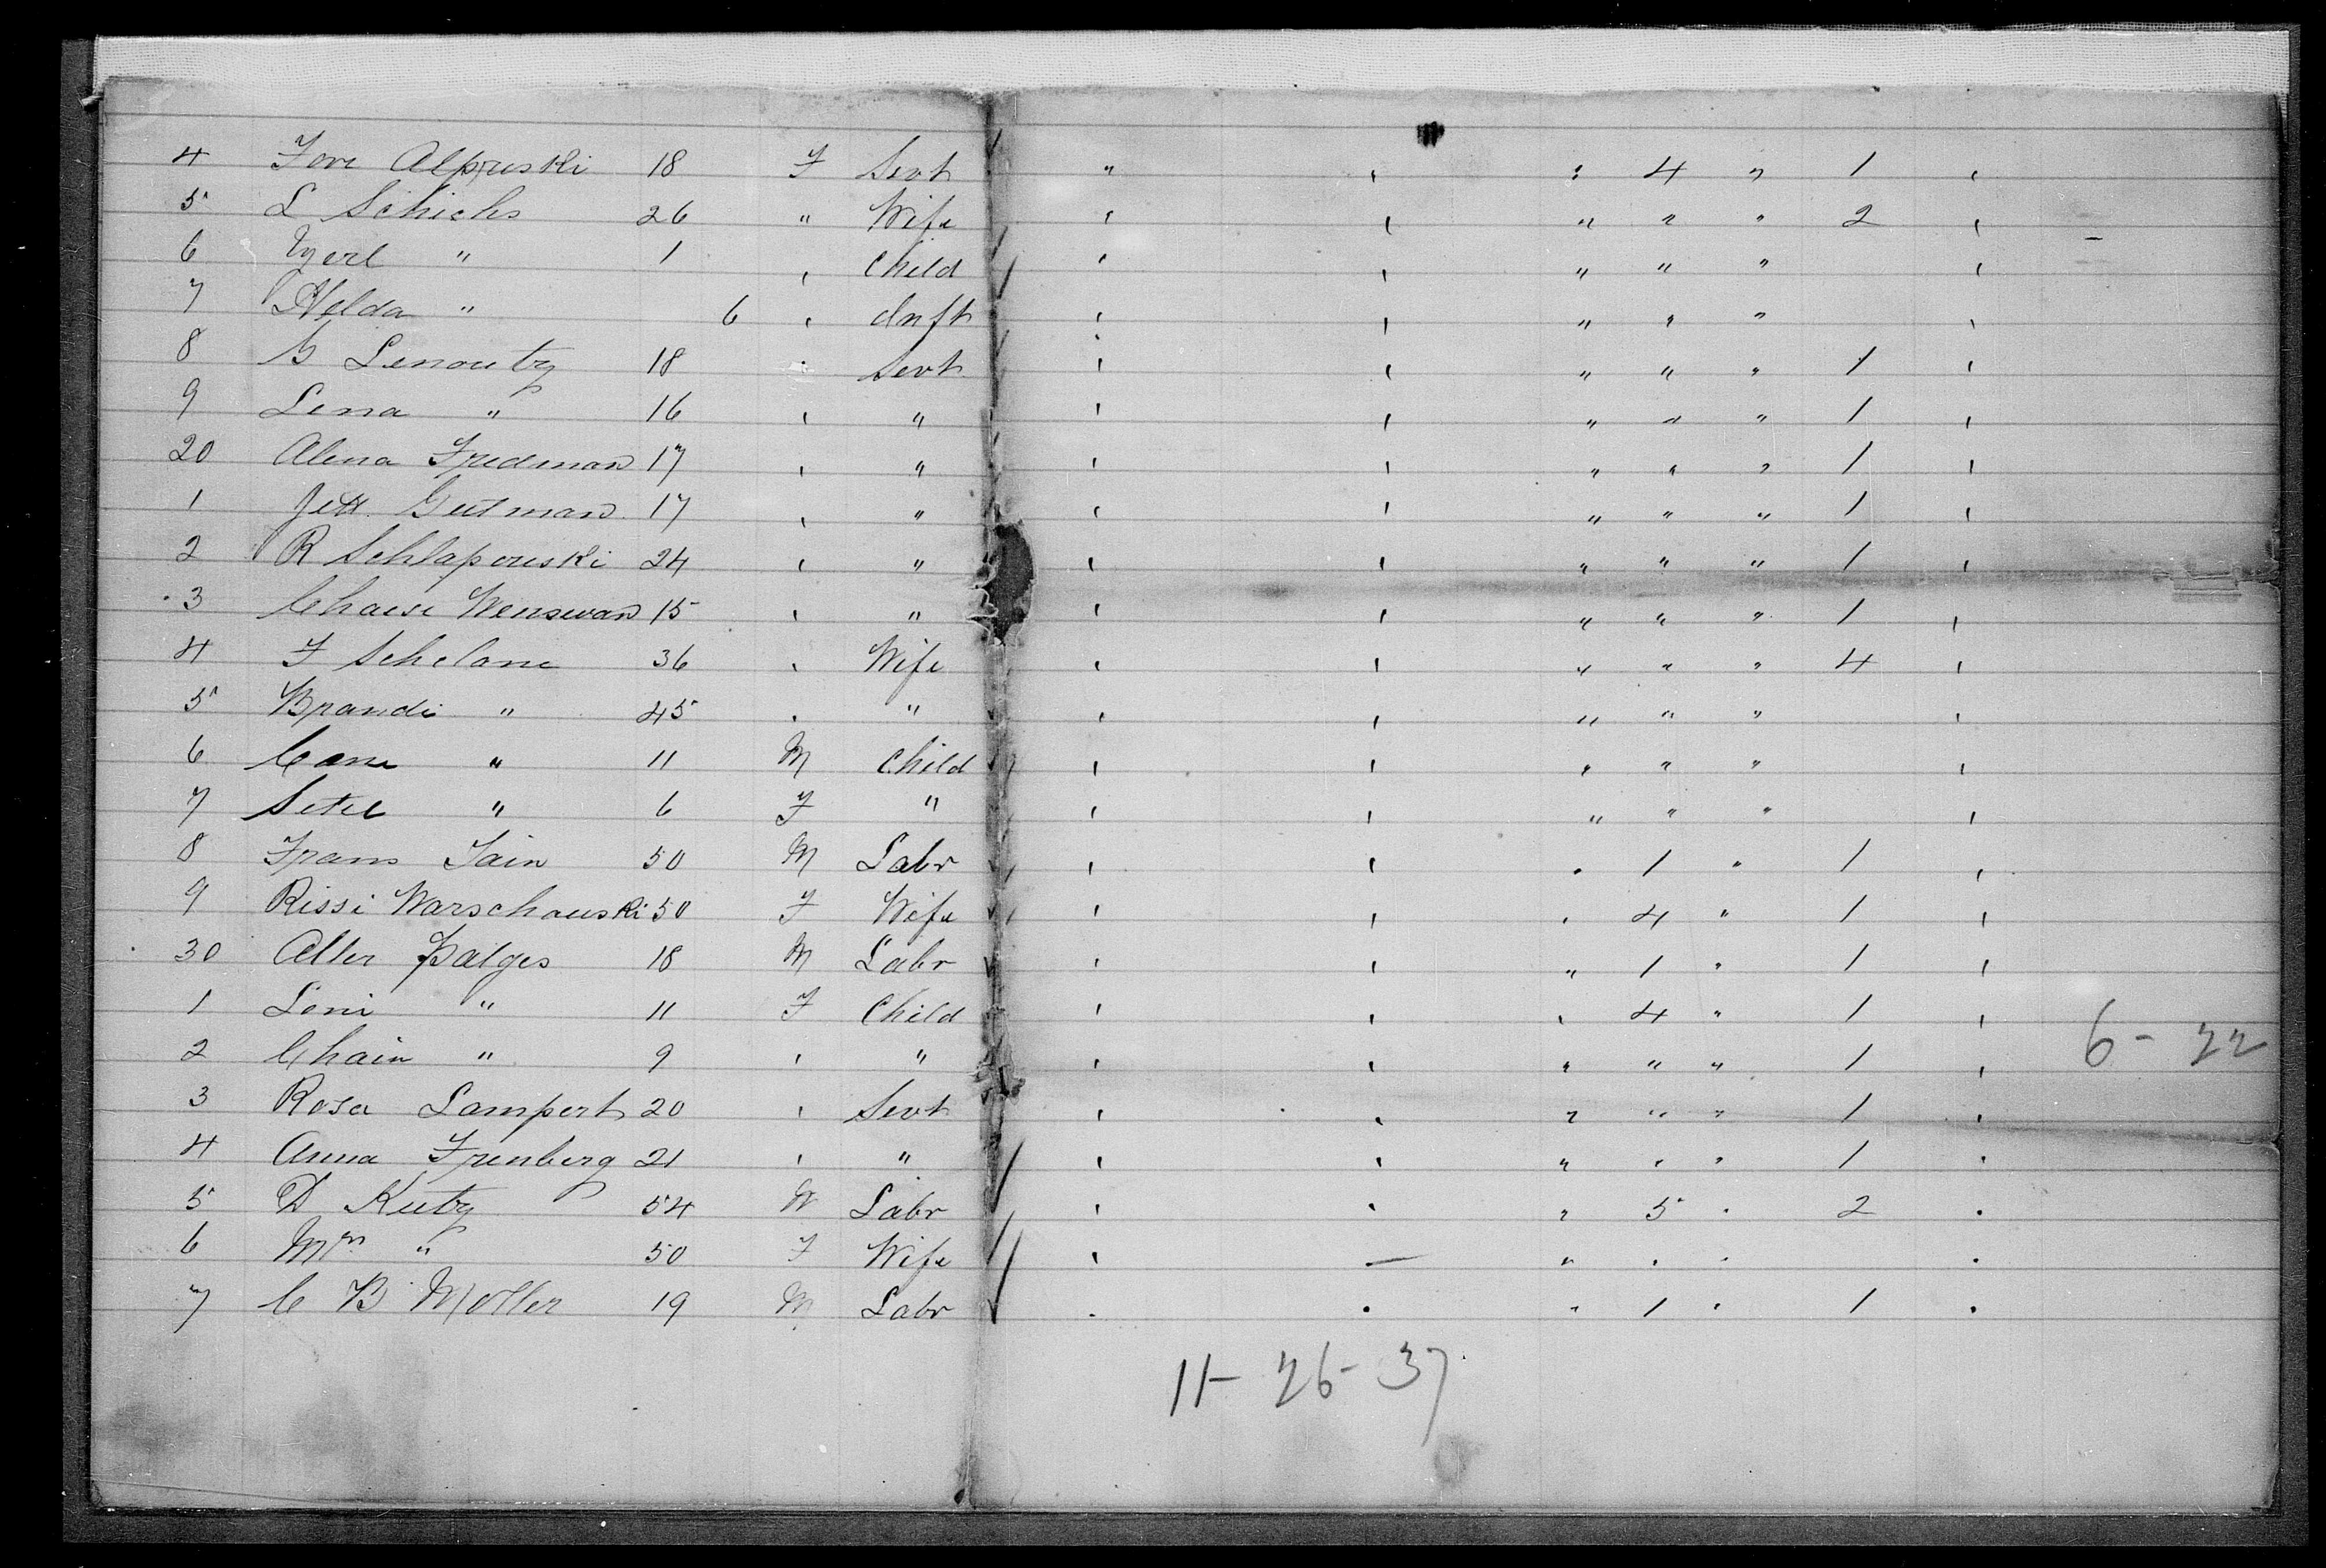 4 Jove Alpruski 18 F Servt " " " 4 " 1 "
5 L Schichs 26 " Wife " " " " " 2 "
6 " 1 " Child " " " " " "
7 Helda " 6 " Inft " " " " " "
8 G Lenoutz 18 " Servt " " " " " 1 "
9 Lena " 16 " " " " " " " 1 "
20 Alena Fredman 17 " " " " " " " 1 "
1 Jett. Gutman 17 " " " " " " " 1 "
2 R Schlapouski 24 " " " " " " " 1 "
3 Chaese Wenswan 15 " " " " " " " 1 "
4 F Schelane 36 " Wife " " " " " 4 "
5 Brandi " 45 " " " " " " " "
6 Cane " 11 M Child " " " " " "
7 Setel " 6 F " " " " " " "
8 Frans Jain 50 M Labr " " " 1 " 1 "
9 Rissi Warschauski 50 F Wife " " " 4 " 1 "
30 Aller Palges 18 M Labr " " " 1 " 1 "
1 Leni " 11 F Child " " " 4 " 1 "
2 Chain " 9 " " " " " " " 1 " 6 - 22
3 Rosa Lampert 20 " Servt " " " " " 1 "
4 Anna Frenberg 21 " " " " " " " 1 "
5 D Kutz 54 M Labr " " " 5 " 2 "
6 Mrs " 50 F Wife " — " " " "
7 C B Moller 19 M Labr " " " 1 " 1 "
11 - 26 - 37